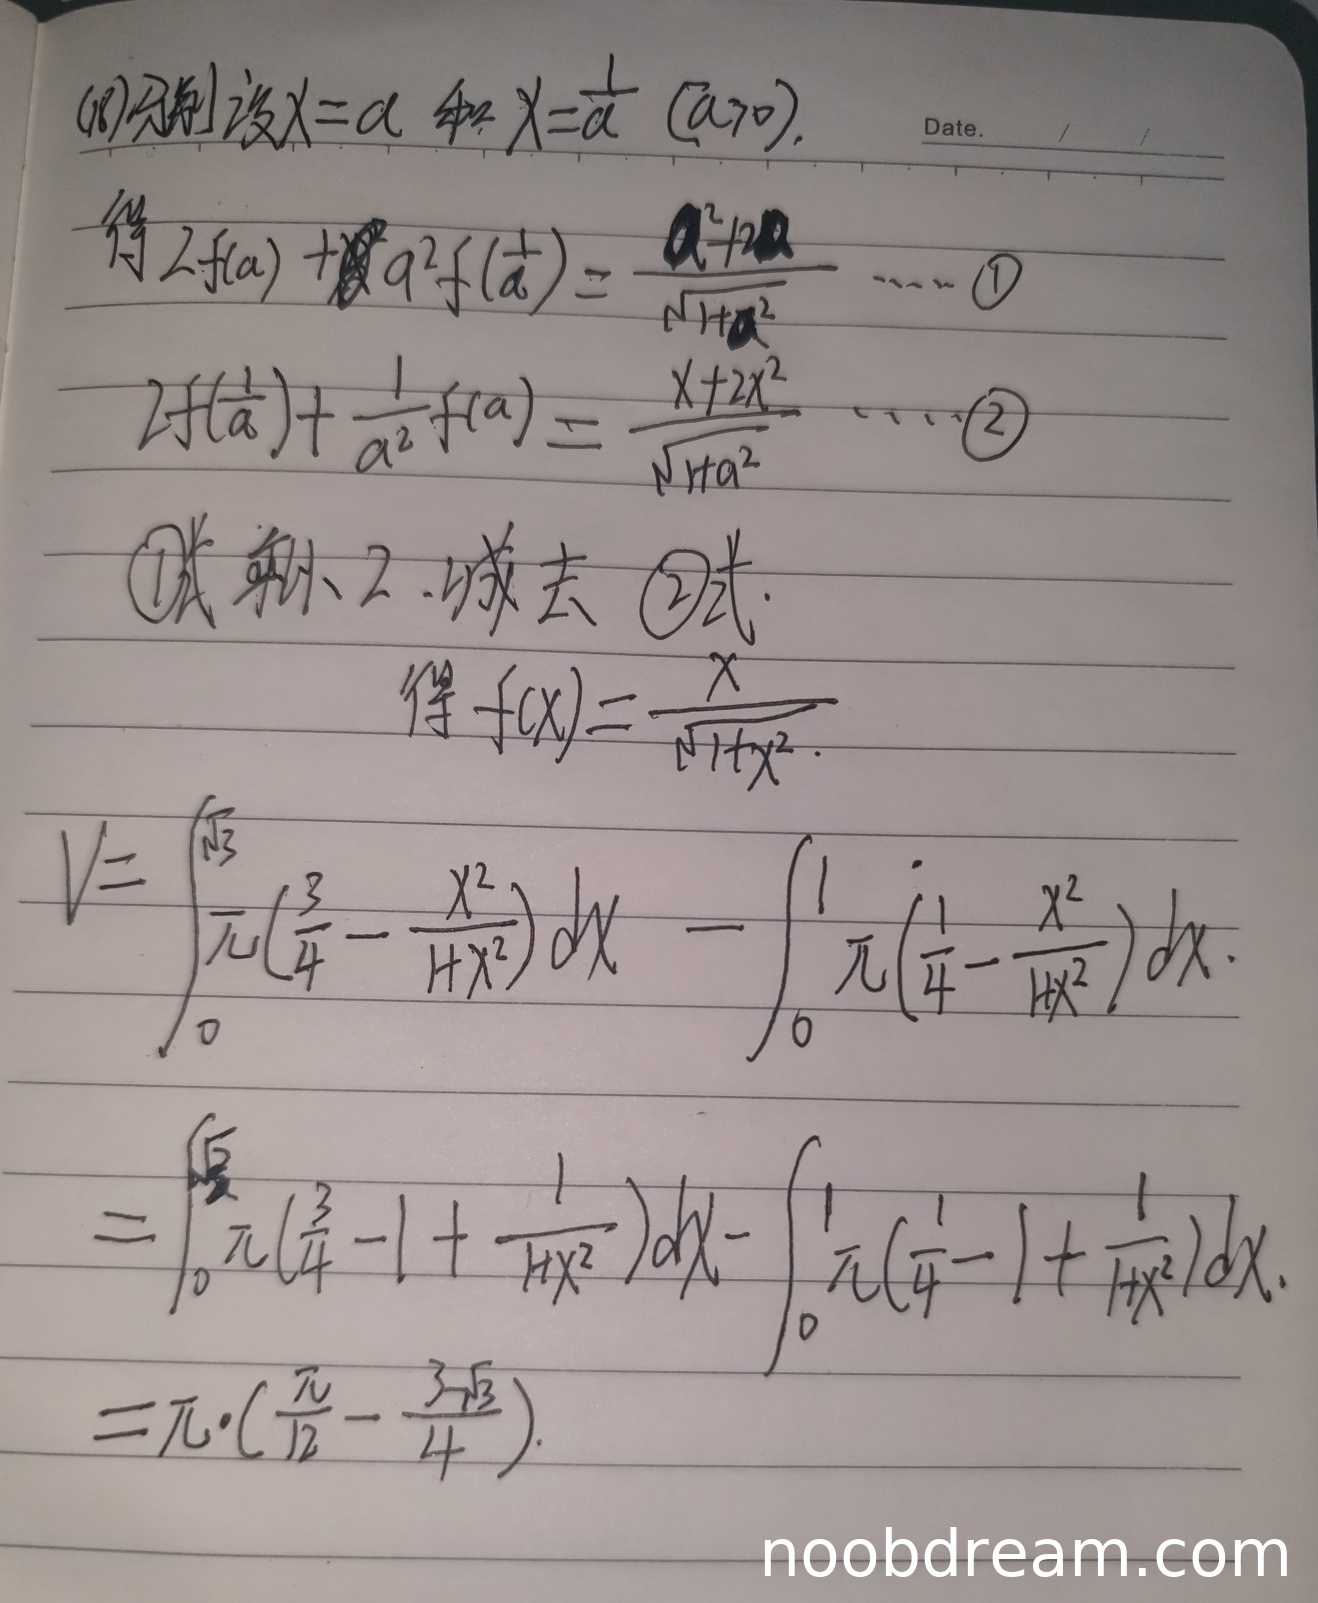 (18)分别设x=a 和 x=1/a (a>0).
Date. / /
得 2f(a) + a²f(1/a) = (a²+2a)/√(1+a²) ····· ①
2f(1/a) + 1/a² f(a) = (x+2x²)/√(1+a²) ····· ②
①式 乘以 2 . 减去 ②式.
得 f(x) = x/√(1+x²).
V = ∫₀^√3 π(3/4 - x²/(1+x²))dx - ∫₀^1 π(1/4 - x²/(1+x²))dx.
= ∫₀ π(3/4 - 1 + 1/(1+x²))dx - ∫₀^1 π(1/4 - 1 + 1/(1+x²))dx.
= π·(π/12 - (3-√3)/4).
noobdream.com